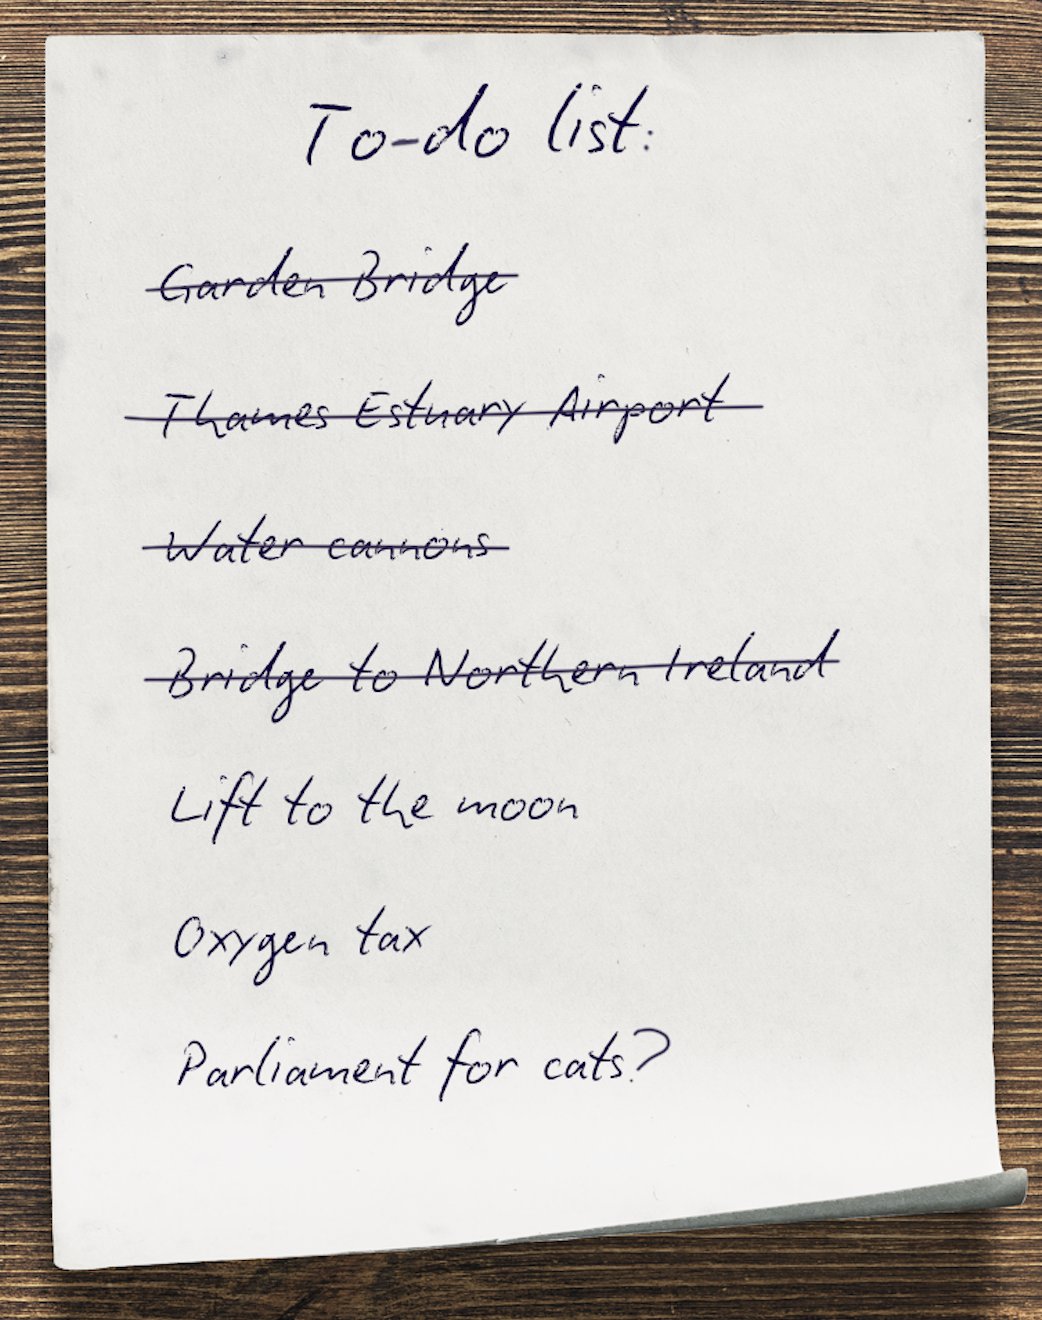 To-do list:
Garden Bridge
Thames Estuary Airport
Water cannons
Bridge to Northern Ireland
Lift to the moon
Oxygen tax
Parliament for cats?